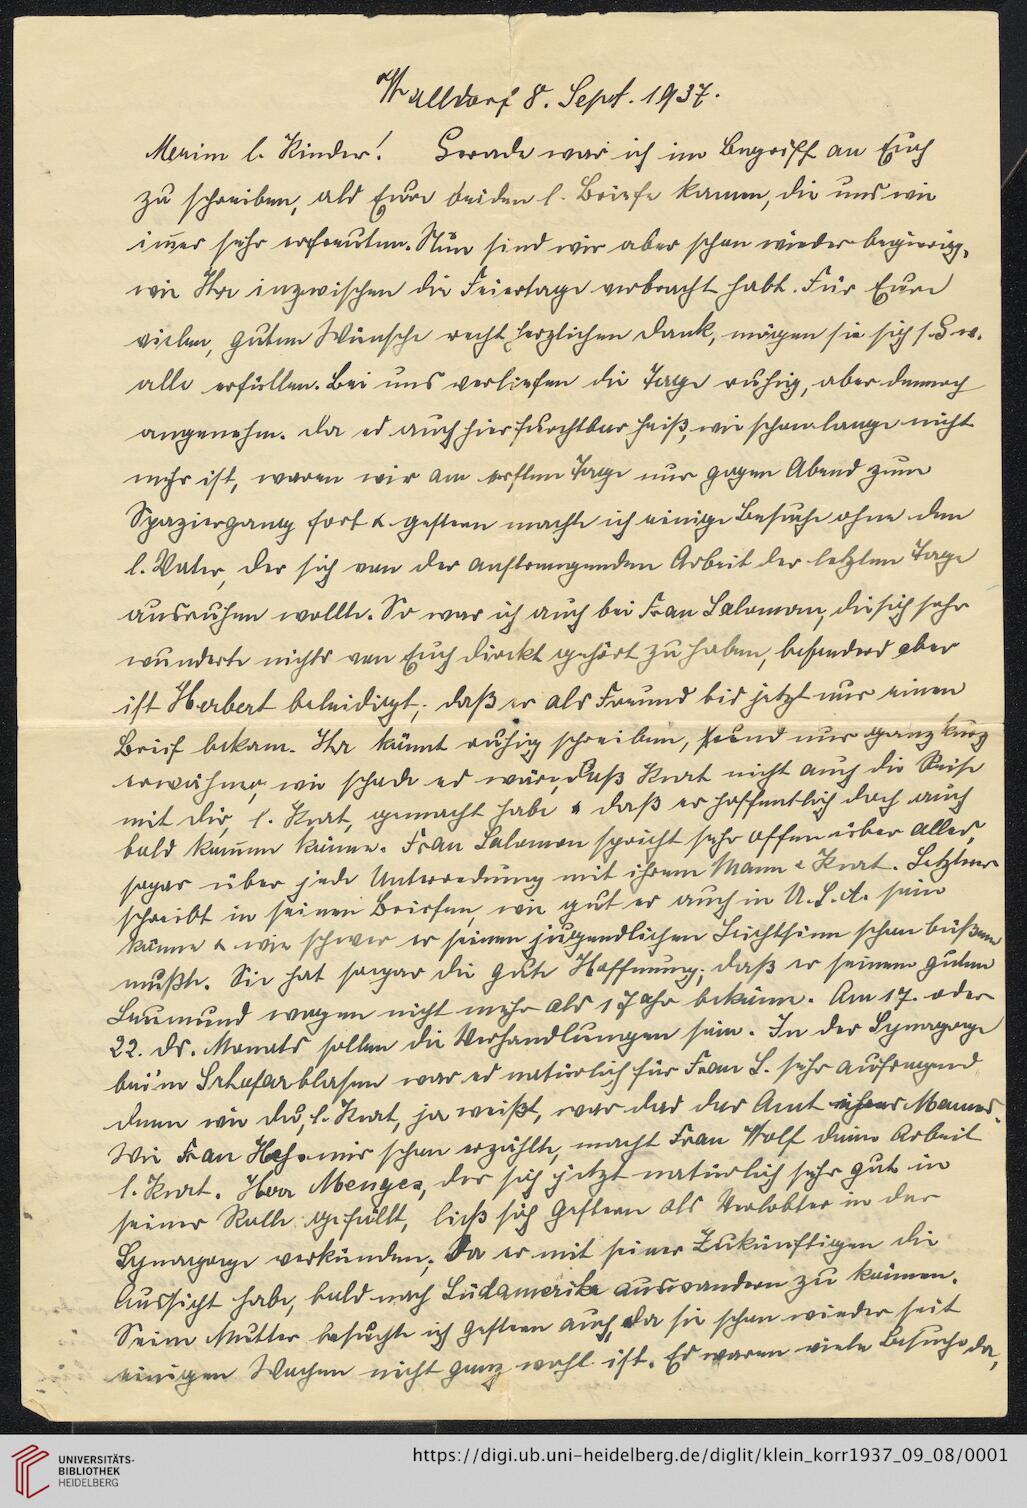 Walldorf 8. Sept. 1937.
Meine l. Kinder! Gerade war ich im Begriff an Euch
zu schreiben, als Eure beiden l. Briefe kamen, die uns wie
im̄er sehr erfreuten. Nun sind wir aber schon wieder begierig,
wie Ihr inzwischen die Feiertage verbracht habt. Für Eure
vielen, guten Wünsche recht herzlichen Dank, mögen sie sich s. G. w.
alle erfüllen. Bei uns verliefen die Tage ruhig, aber dennoch
angenehm. Da es auch hier furchtbar heiß, wie schon lange nicht
mehr ist, waren wir am ersten Tage nur gegen Abend zum
Spaziergang fort & gestern machte ich einige Besuche ohne den
l. Vater, der sich von der anstrengenden Arbeit der letzten Tage
ausruhen wollte. So war ich auch bei Frau Salomon, die sich sehr
wunderte nichts von Euch direkt gehört zu haben, besonders aber
ist Herbert beleidigt, daß er als Freund bis jetzt nur einen
Brief bekam. Ihr könnt ruhig schreiben, und nur ganz kurz
erwähnen, wie schade es wäre, daß Kurt nicht auch die Reise
mit Dir, l. Kurt, gemacht habe & daß er hoffentlich doch auch
bald kom̄en könne. Frau Salomon spricht sehr offen über alles,
sogar über jede Unterredung mit ihrem Mann & Kurt. Letzterer
schreibt in seinen Briefen, wie gut er auch in U.S.A. sein
könne & wie schwer er seinen jugendlichen Leichtsinn schon büßen
mußte. Sie hat sogar die gute Hoffnung, daß er seinem guten
Leumund wegen nicht mehr als 1 Jahr bekäme. Am 17. oder
22. ds. Monats sollen die Verhandlungen sein. In der Synagoge
beim Schofarblasen war es natürlich für Frau S. sehr aufregend
denn wie Du, l. Kurt, ja weißt, war das das Amt ihres Mannes.
Wie Frau Heß mir schon erzählte, macht Frau Wolf Deine Arbeit
l. Kurt. Herr Menges, der sich jetzt natürlich sehr gut in
seiner Rolle gefällt, ließ sich gestern als Verlobter in der
Synagoge verkünden, da er mit seiner Zukünftigen die
Aussicht habe, bald nach Südamerika auswandern zu können.
Seine Mutter besuchte ich gestern auch, da sie schon wieder seit
einigen Wochen nicht ganz wohl ist. Es waren viele Besuche da,
UNIVERSITÄTS-
BIBLIOTHEK
HEIDELBERG
https://digi.ub.uni-heidelberg.de/diglit/klein_korr1937_09_08/0001